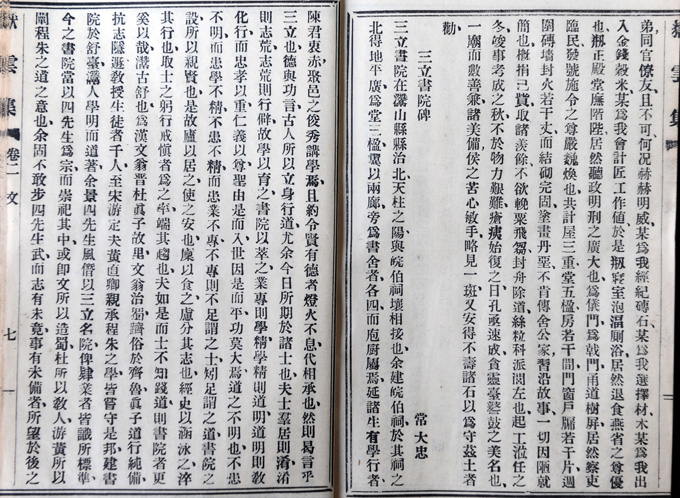 弟同官僚友且不可何况赫赫明威某爲我經紀磚石某爲我選擇材木某爲我出
入金錢穀米某爲我會計匠工作値於是瓶窖室泡湢厠居然退食燕省之尊優
也瓶正殿堂廡階陛居然聽政明刑之廣大也爲儀門爲戟門甬道樹屛居然察吏
臨民發號施令之尊嚴巍煥也共計屋三重堂五楹房若干間門窗戶牖若干片週
圍磚墻封火若干丈而結砌完固塗畫丹堊不肯傳舍公家習沿故事一切因陋就
簡也槪捐己貲取諸羨餘不欲輓粟飛芻封舟除道絲粒科派閭左也起工於任之
冬竣事考成之秋不於物力艱難瘡痍始復之日孔亟速成貪靈臺鼛鼓之美名也
一廟而數善兼諸美備侯之苦心敏手略見一斑又安得不壽諸石以爲守茲土者
勸
三立書院碑
常大忠
三立書院在灊山縣縣治北天柱之陽與皖伯祠壤相接也余建皖伯祠於其祠之
北得地平廣爲堂三楹翼以兩廊旁爲書舍者各四而庖廚屬焉延諸生有學行者
陳君衷赤聚邑之俊秀講學焉且約令賢有德者燈火不息代相承也然則曷言乎
三立也德與功言古人所以立身行道尤余今日所期於諸士也夫士羣居則淆淆
則志荒志荒則行僻故學以育之書院以萃之業專則學精學精則道明道明則敎
化行而忠孝以重仁義以尊聖由是而入世因是而平功莫大焉道之不明也不患
不明而患學不精不患不精而患業不專不專則不足謂之士矧足謂之道書院之
設所以親賢也是故廬以居之使之安也廩以食之慮分其志也經史以涵泳之淬
其行也取士之躬行戒愼者爲之率端其趨也夫如是而士不知錢道則書院者更
奚以哉溝古舒也爲漢文翁晋杜眞子故里文翁治蜀儕俗於齊魯眞子道行純備
抗志隱遯敎授生徒者千人至宋游定夫黃直卿親承程朱之學皆嘗守是邦建書
院於舒臺灊人學明而道著余景四先生風眉以三立名院俾肄業者皆識所標準
今之書院當以四先生爲宗而崇祀其中或卽文所以造蜀杜所以敎人游黃所以
闡程朱之道之意也余固不敢步四先生武而志有未竟事有未備者所望於後之
雲集
卷二
文
七